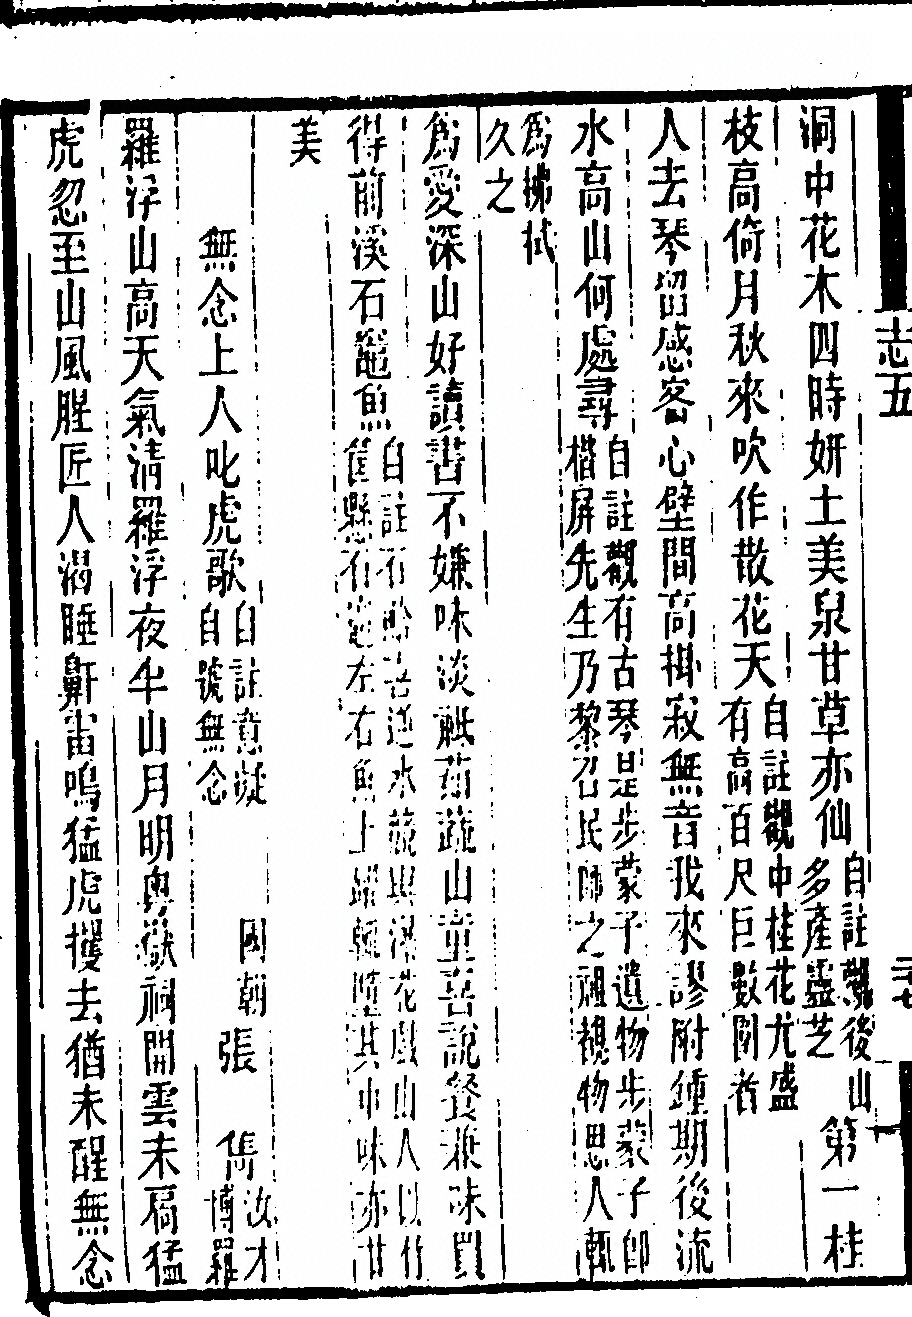 志五
二十七
洞中花木四時妍土美泉甘草亦仙自註觀後山多產靈芝第一桂
枝高倚月秋來吹作散花天自註觀中桂花尤盛有高百尺巨數圍者
人去琴留感客心壁間高掛寂無音我來謬附鍾期後流
水高山何處尋自註觀有古琴是步蒙子遺物步蒙子卽楷屏先生乃黎召民師之祖覩物思人輒
爲拂拭久之
爲愛深山好讀書不嫌味淡觝茹蔬山童喜說餐兼味買
得前溪石鼈魚自註石 水 花 山人以竹筐懸石 左右魚上躍輒墮其中味亦甜
美
無念上人叱虎歌自註意凝自號無念 國朝張 雋汝才博羅
羅浮山高天氣淸羅浮夜半山月明奧嶽祠開雲未扃猛
虎忽至山風腥匠人渴睡鼾雷鳴猛虎攫去猶未醒無念